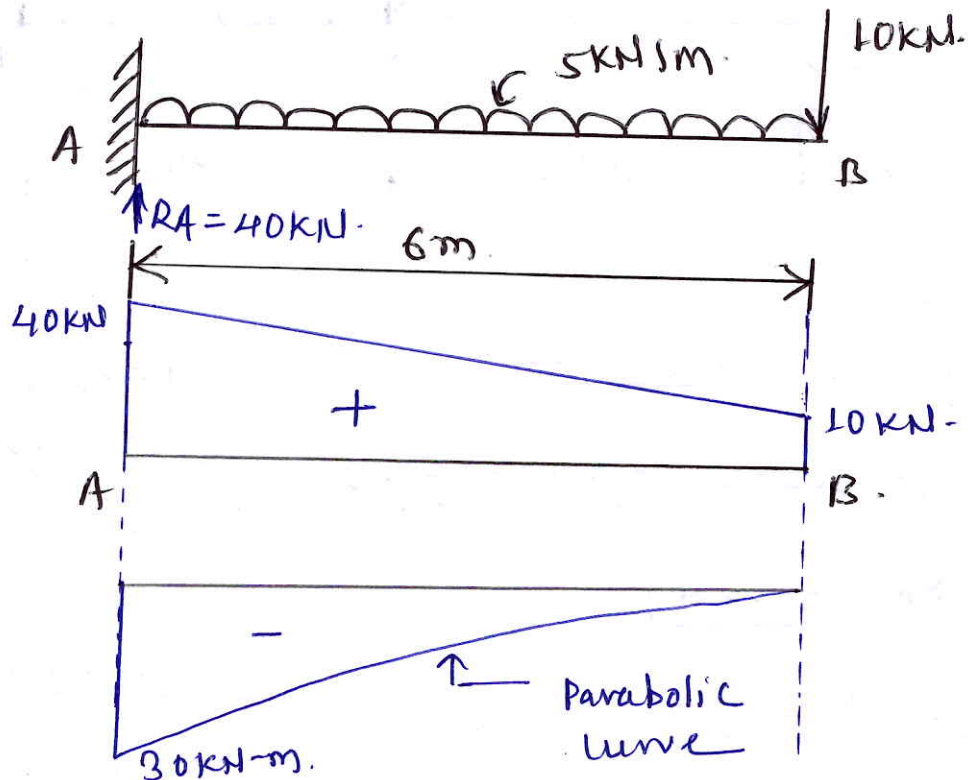 10KN.
5KN/m.
A
B
RA=40KN.
6m
40KN
+
10KN-
A
B.
-
Parabolic
curve
30KN-m.